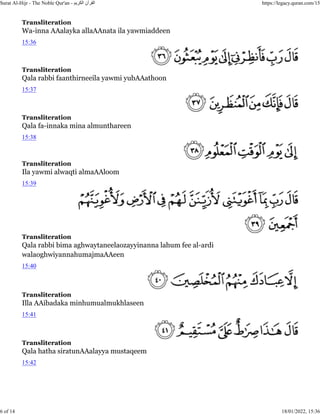 Surat Al-Hijr - The Noble Qur'an - القرآن الكريم
https://legacy.quran.com/15
Transliteration
Wa-inna AAalayka allaAAnata ila yawmiddeen
15:36
قَالَ رَبِّ فَأَنظِرْنِىٓ إِلَىٰ يَوْمِ يُبْعَثُونَ ٣٦
Transliteration
Qala rabbi faanthirneeila yawmi yubAAathoon
15:37
قَالَ فَإِنَّكَ مِنَ ٱلْمُنظَرِينَ ٣٧
Transliteration
Qala fa-innaka mina almunthareen
15:38
إِلَىٰ يَوْمِ ٱلْوَقْتِ ٱلْمَعْلُومِ ٣٨
Transliteration
Ila yawmi alwaqti almaAAloom
15:39
قَالَ رَبِّ بِمَآ أَغْوَيْتَنِى لَأُزَيِّنَنَّ لَهُمْ فِى ٱلْأَرْضِ وَلَأُغْوِيَنَّهُمْ
أَجْمَعِينَ ٣٩
Transliteration
Qala rabbi bima aghwaytaneelaozayyinanna lahum fee al-ardi
walaoghwiyannahumajmaAAeen
15:40
إِلَّا عِبَادَكَ مِنْهُمُ ٱلْمُخْلَصِينَ ٤٠
Transliteration
Illa AAibadaka minhumualmukhlaseen
15:41
قَالَ هَـٰذَا صِرَٰطٌ عَلَىَّ مُسْتَقِيمٌ ٤١
Transliteration
Qala hatha siratunAAalayya mustaqeem
15:42
6 of 14
18/01/2022, 15:36